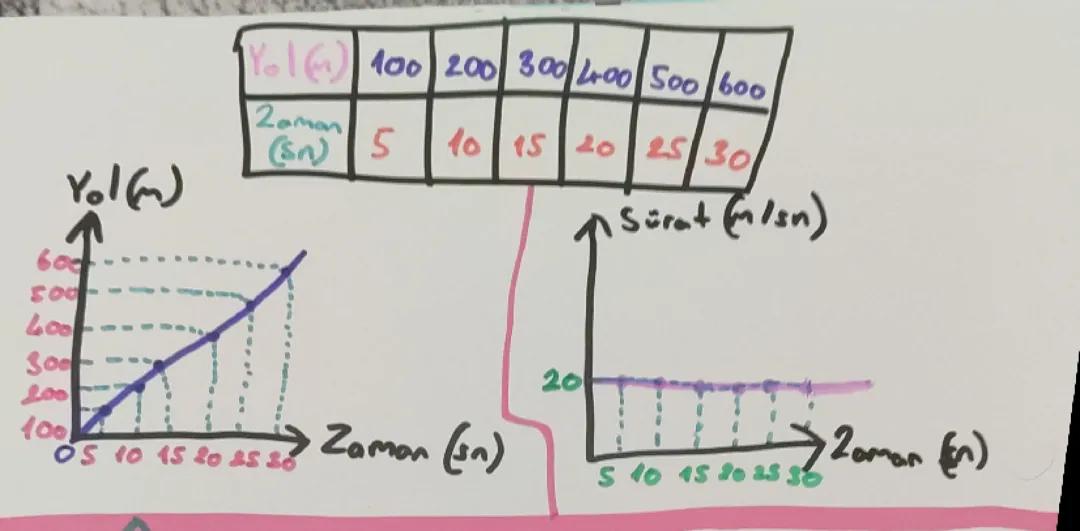 Yol(m) 100 200 300 400 500 600
Zaman (sn) 5 10 15 20 25 30
Yol(m)
600
500
400
300
200
100
0 5 10 15 20 25 30
Zaman (sn)
Sürat (m/sn)
20
5 10 15 20 25 30
Zaman (sn)